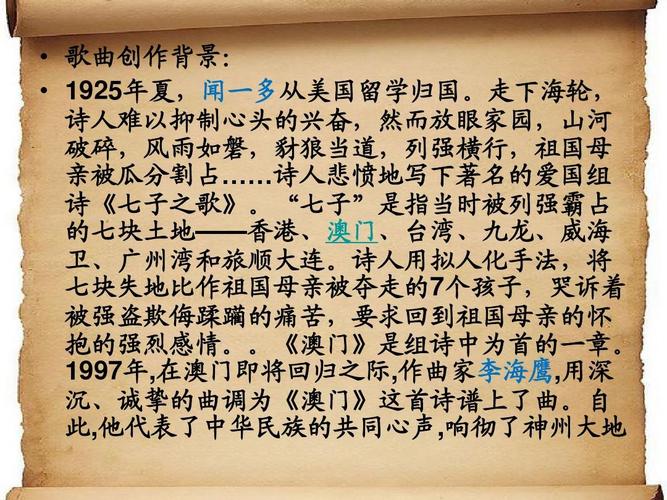 • 歌曲创作背景：
• 1925年夏，闻一多从美国留学归国。走下海轮，
诗人难以抑制心头的兴奋，然而放眼家园，山河
破碎，风雨如磐，豺狼当道，列强横行，祖国母
亲被瓜分割占……诗人悲愤地写下著名的爱国组
诗《七子之歌》。“七子”是指当时被列强霸占
的七块土地——香港、澳门、台湾、九龙、威海
卫、广州湾和旅顺大连。诗人用拟人化手法，将
七块失地比作祖国母亲被夺走的7个孩子，哭诉着
被强盗欺侮蹂躏的痛苦，要求回到祖国母亲的怀
抱的强烈感情。。《澳门》是组诗中为首的一章。
1997年,在澳门即将回归之际,作曲家李海鹰,用深
沉、诚挚的曲调为《澳门》这首诗谱上了曲。自
此,他代表了中华民族的共同心声,响彻了神州大地